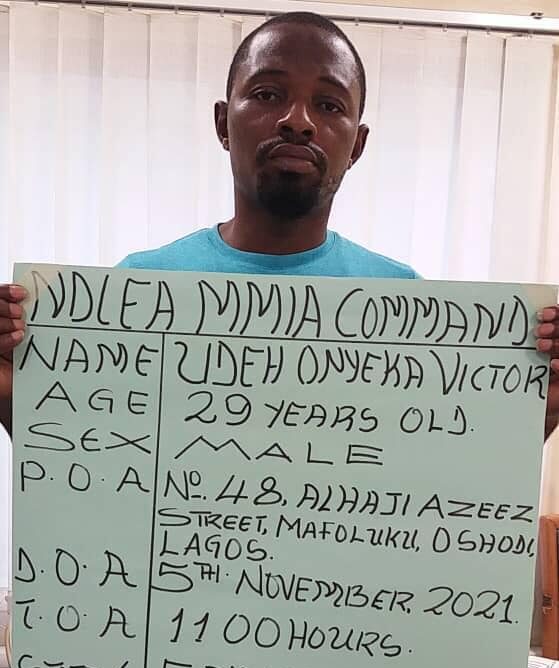 NDLEA MMIA COMMAND
NAME UDEH ONYEKA VICTOR
AGE 29 YEARS OLD.
SEX MALE
P.O.A Nº. 48, ALHAJI AZEEZ
STREET, MAFOLUKU, OSHODI,
LAGOS.
D.O.A 5TH. NOVEMBER, 2021.
T.O.A 1100HOURS.